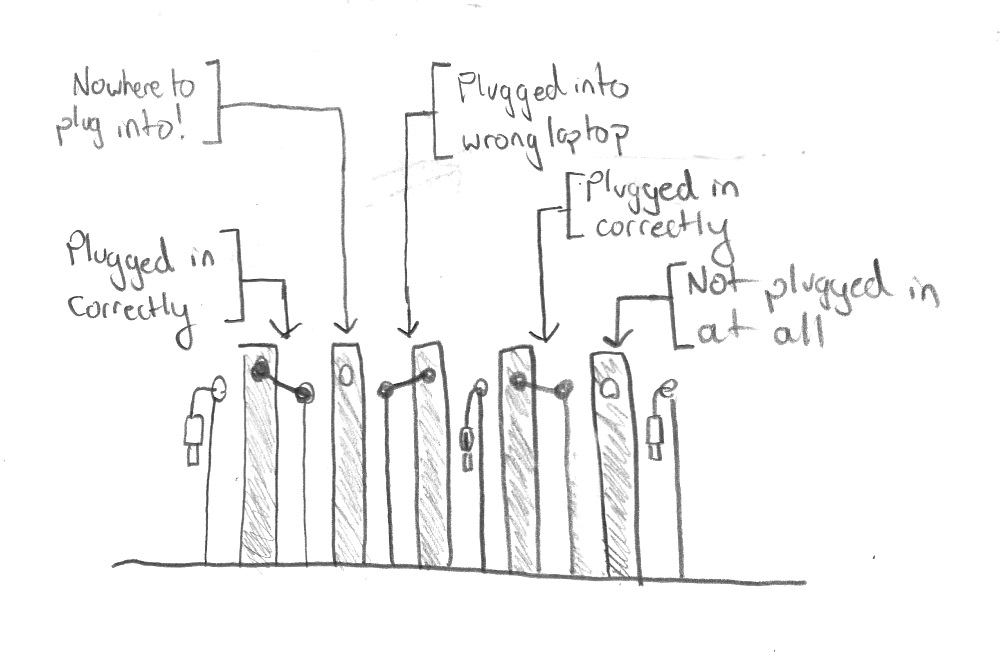 Nowhere to
plug into!
Plugged into
wrong laptop
Plugged in
correctly
Plugged in
correctly
Not plugged in
at all